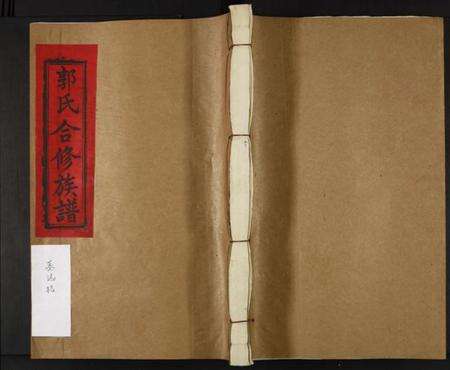 郭氏合修族譜